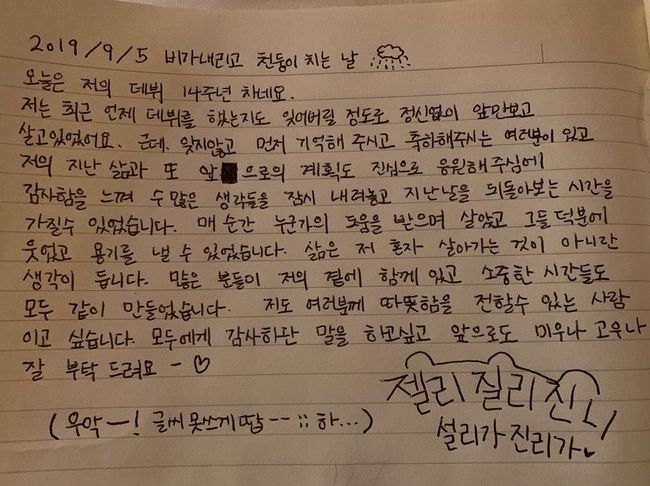 2019/9/5 비가내리고 천둥이 치는 날
오늘은 저의 데뷔 14주년 차네요.
저는 최근 언제 데뷔를 했는지도 잊어버릴 정도로 정신없이 앞만보고
살고있었어요. 근데. 잊지않고 먼저 기억해 주시고 축하해주시는 여러분이 있고
저의 지난 삶과 또 앞으로의 계획도 진심으로 응원해 주심에
감사함을 느껴 수 많은 생각들을 잠시 내려놓고 지난날을 뒤돌아보는 시간을
가질수 있었습니다. 매 순간 누군가의 도움을 받으며 살았고 그들 덕분에
웃었고 용기를 낼 수 있었습니다. 삶은 저 혼자 살아가는 것이 아니란
생각이 듭니다. 많은 분들이 저의 곁에 함께 있고 소중한 시간들도
모두 같이 만들었습니다. 저도 여러분께 따뜻함을 전할수 있는 사람
이고 싶습니다. 모두에게 감사하단 말을 하고싶고 앞으로도 미우나 고우나
잘 부탁 드려요 - ♡
젤리 질리 진리
설리가 진리가♥
(우악-! 글씨 못쓰게땁--;; 하...)